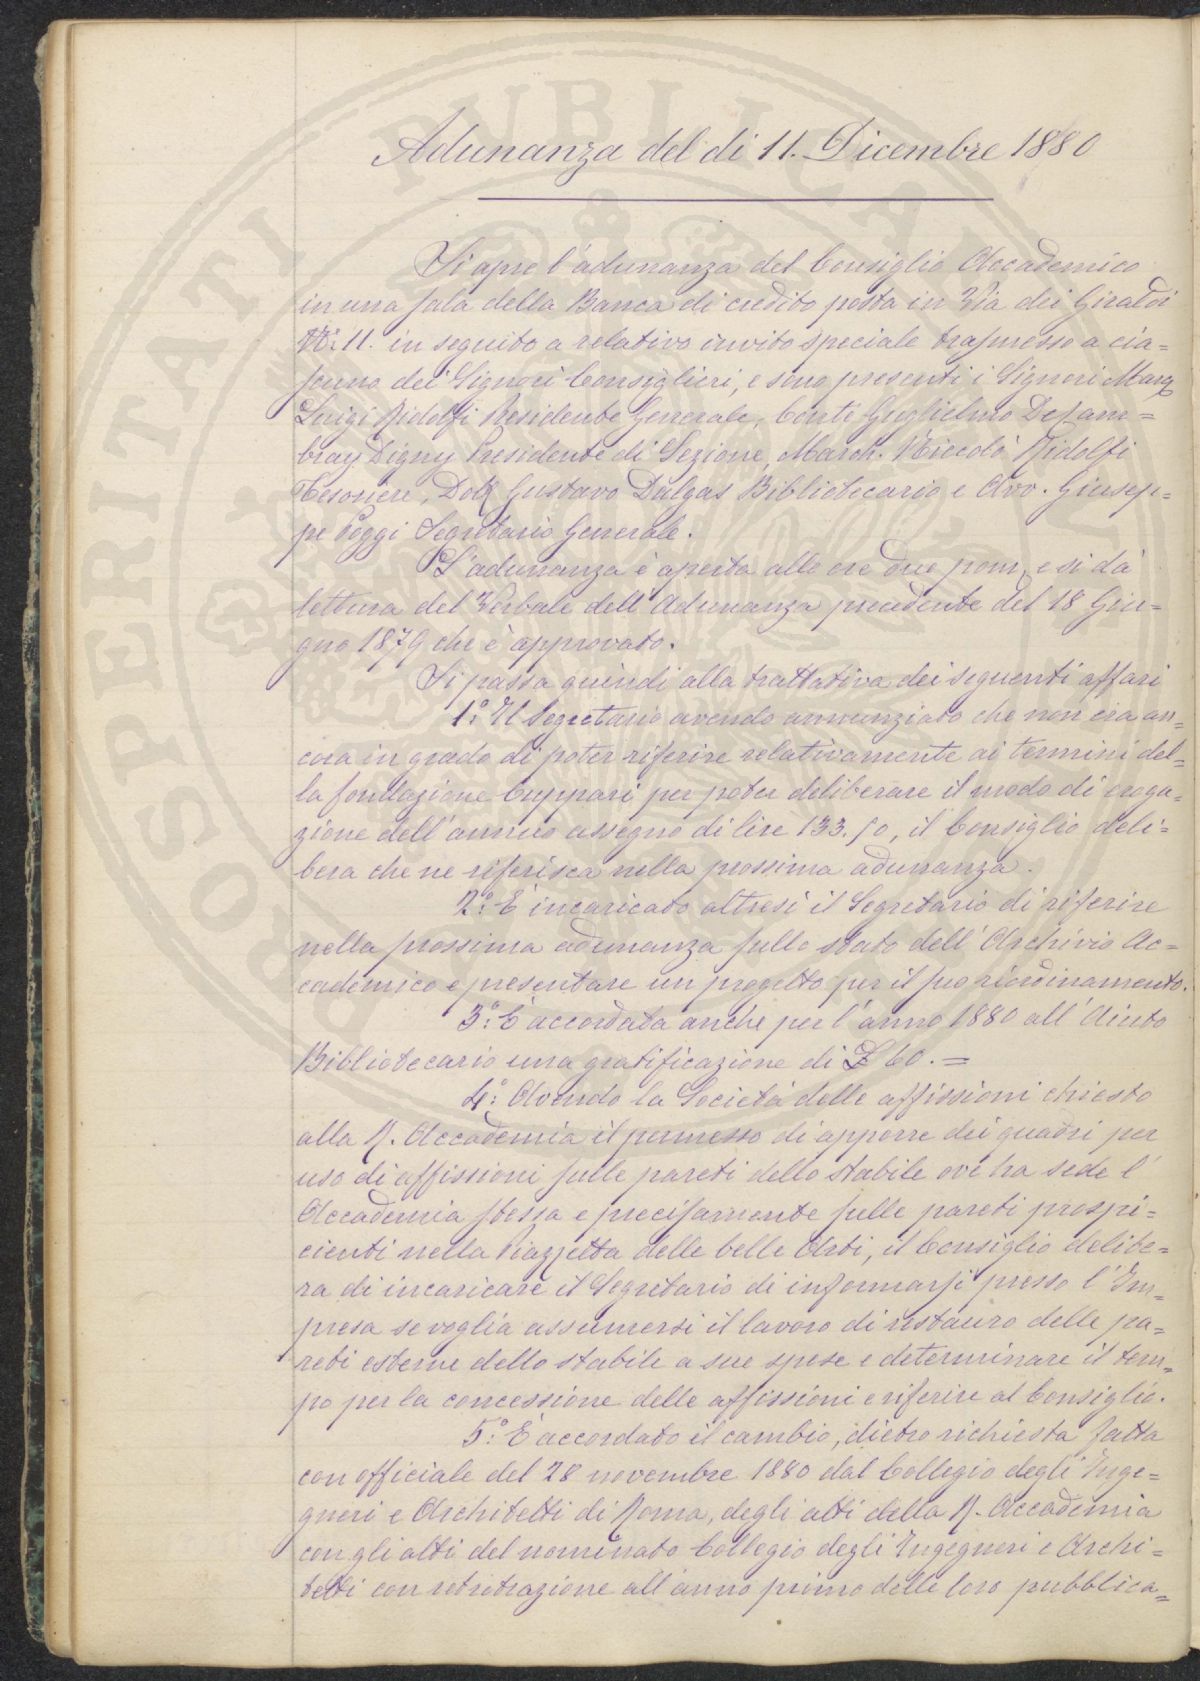 Adunanza del dì 11. Dicembre 1880
Si apre l'adunanza del Consiglio Accademico
in una sala della Banca di credito posta in Via dei Giraldi
N: 11. in seguito a relativo invito speciale trasmesso a cia=
scuno dei Signori Consiglieri, e sono presenti i Signori Marq
Luigi Ridolfi Presidente Generale, Conte Guglielmo De Cam=
bray Digny Presidente di Sezione, March. Niccolò Ridolfi
Tesoriere, Dott Gustavo Dalgas Bibliotecario e Avv. Giusep=
pe Poggi Segretario Generale.
L'adunanza è aperta alle ore due pom. e si dà
lettura del Verbale dell'Adunanza precedente del 18 Giu=
gno 1879 che è approvato.
Si passa quindi alla trattativa dei seguenti affari
1°: Il Segretario avendo annunziato che non era an=
cora in grado di poter riferire relativamente ai termini del=
la fondazione Cuppari per poter deliberare il modo di eroga=
zione dell'annuo assegno di lire 133.50, il Consiglio deli=
bera che ne riferisca nella prossima adunanza.
2°: È incaricato altresì il Segretario di riferire
nella prossima adunanza sullo stato dell'Archivio Ac=
cademico e presentare un progetto per il suo riordinamento.
3°: È accordata anche per l'anno 1880 all'Aiuto
Bibliotecario una gratificazione di £ 60.=
4°: Avendo la Società delle affissioni chiesto
alla R. Accademia il permesso di apporre dei quadri per
uso di affissioni sulle pareti dello stabile ove ha sede l'
Accademia stessa e precisamente sulle pareti prospi=
cienti nella Piazzetta delle belle Arti, il Consiglio delibe=
ra di incaricare il Segretario di informarsi presso l'Im=
presa se voglia assumersi il lavoro di restauro delle pa=
reti esterne dello stabile a sue spese e determinare il tem=
po per la concessione delle affissioni e riferire al Consiglio.
5°: È accordato il cambio, dietro richiesta fatta
con officiale del 28 novembre 1880 dal Collegio degli Inge=
gneri e Architetti di Roma, degli atti della R. Accademia
con gli atti del nominato Collegio degli Ingegneri e Archi=
tetti con retrotrazione all'anno primo delle loro pubblica=
PROSPERITATI PUBLICAE